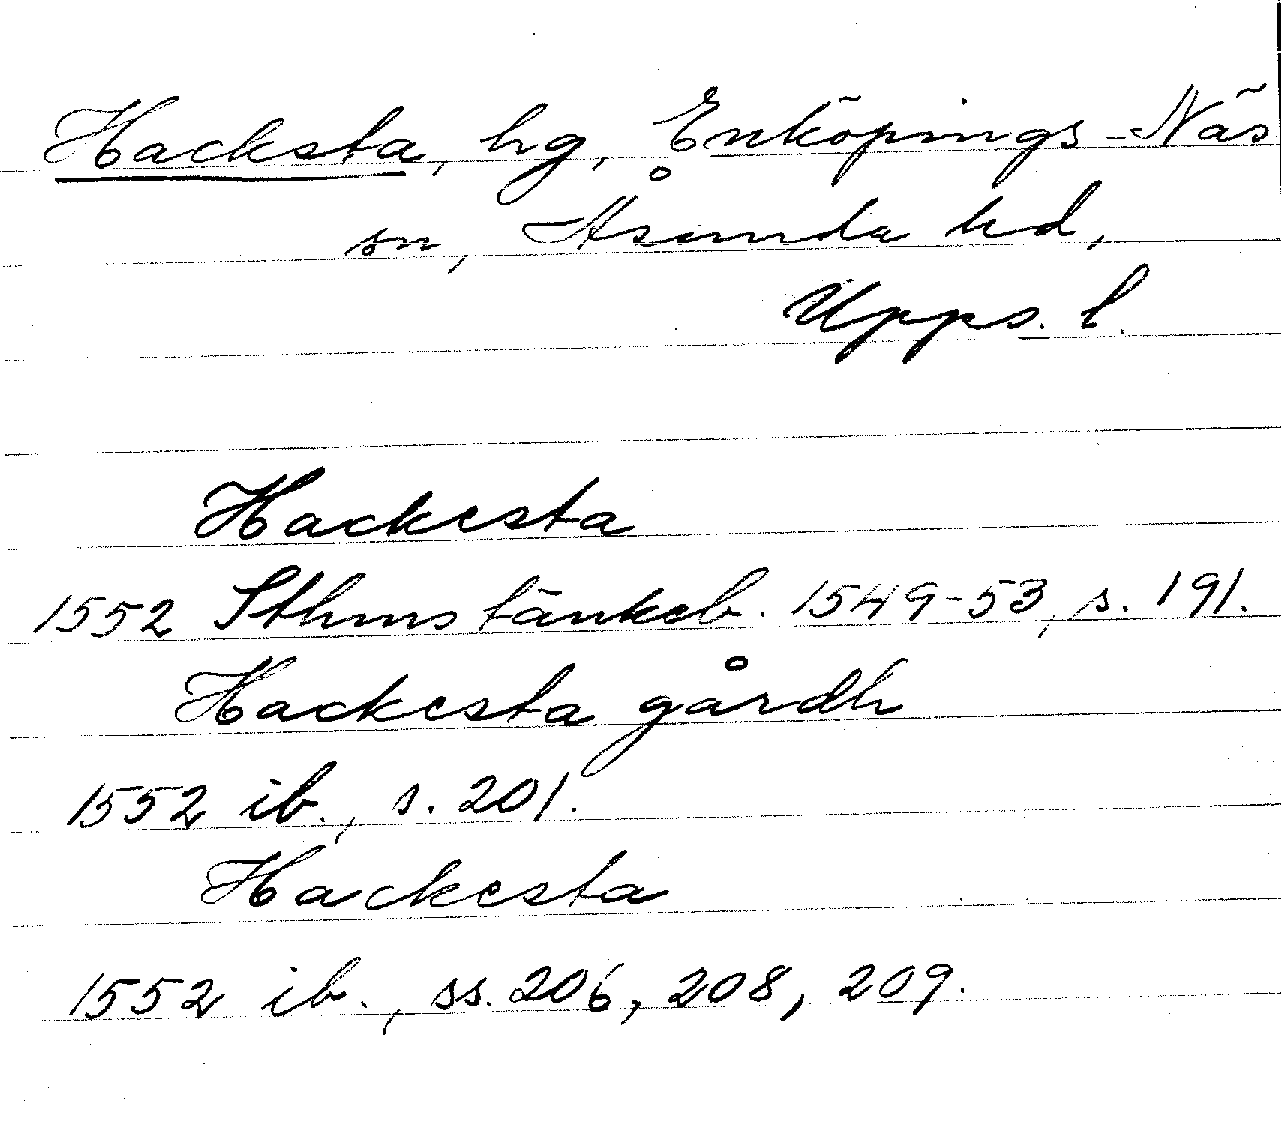 Hacksta, hg, Enköpings-Näs
sn, Åsunda hd,
Upps. l.
Hackesta
1552 Sthms tänkeb. 1549-53, s. 191.
Hackesta gårdh
1552 ib., s. 201.
Hackesta
1552 ib., ss. 206, 208, 209.